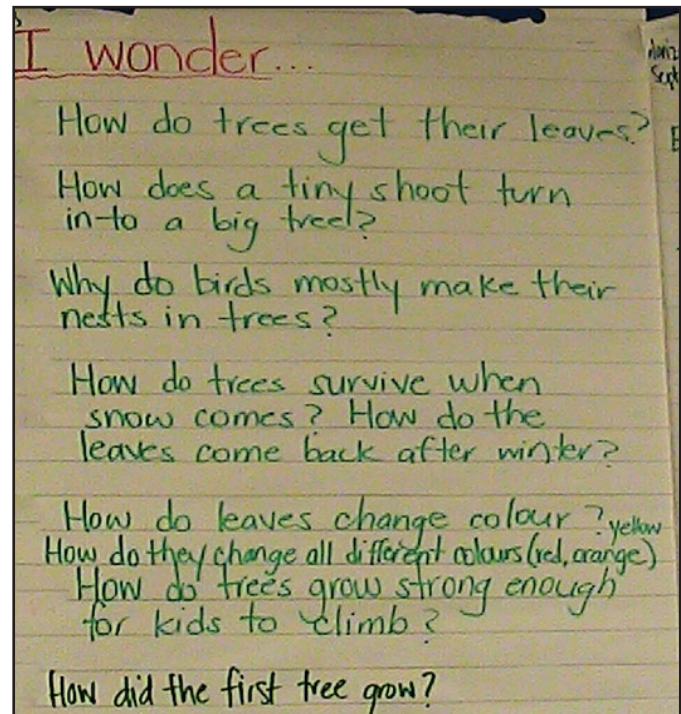 I wonder...
How do trees get their leaves?
How does a tiny shoot turn
in-to a big tree?
Why do birds mostly make their
nests in trees?
How do trees survive when
snow comes? How do the
leaves come back after winter?
How do leaves change colour?
yellow
How do they change all different colours (red, orange)
How do trees grow strong enough
for kids to climb?
How did the first tree grow?